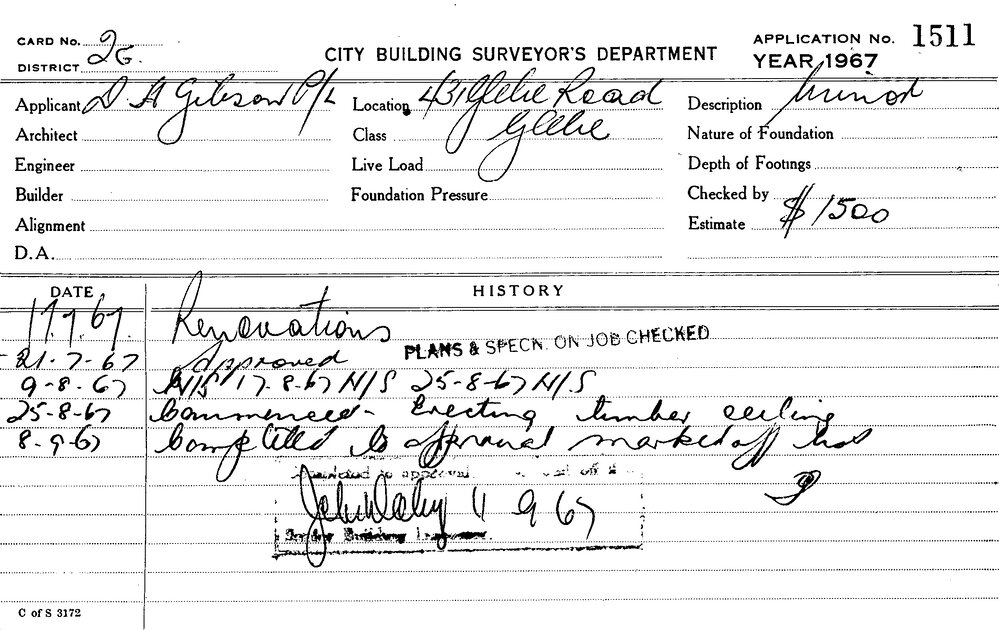 CARD No. 2G.
DISTRICT
CITY BUILDING SURVEYOR'S DEPARTMENT
APPLICATION No. 1511
YEAR 1967
Applicant D H Gibson P/L
Location 431 Glebe Road
Glebe
Description Minor
Architect
Class
Nature of Foundation
Engineer
Live Load
Depth of Footings
Builder
Foundation Pressure
Checked by
Alignment
Estimate $1500
D.A.
DATE
HISTORY
17.7.67. Renovations
PLANS & SPECN. ON JOB CHECKED
21-7-67 Approved
9-8-67 N/S 17-8-67 N/S 25-8-67 N/S
25-8-67 Commenced - Erecting timber ceiling
8-9-67 Completed to approval marked off
Completed to approval off
11 9 67
Building
C of S 3172